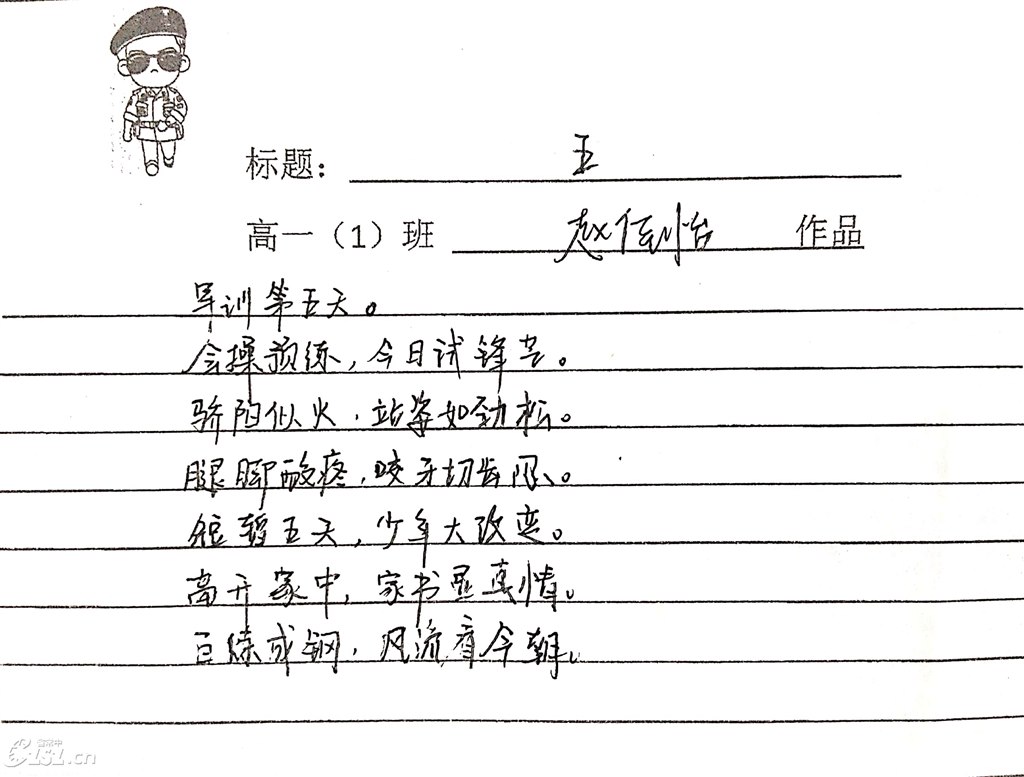 标题： 五
高一（1）班 赵 怡 作品
军训第五天。
会操预练，今日试锋芒。
骄阳似火，站姿如劲松。
腿脚酸疼，咬牙切齿。
短暂五天，少年大改变。
离开家中，家书显真情。
百炼成钢，风流看今朝。